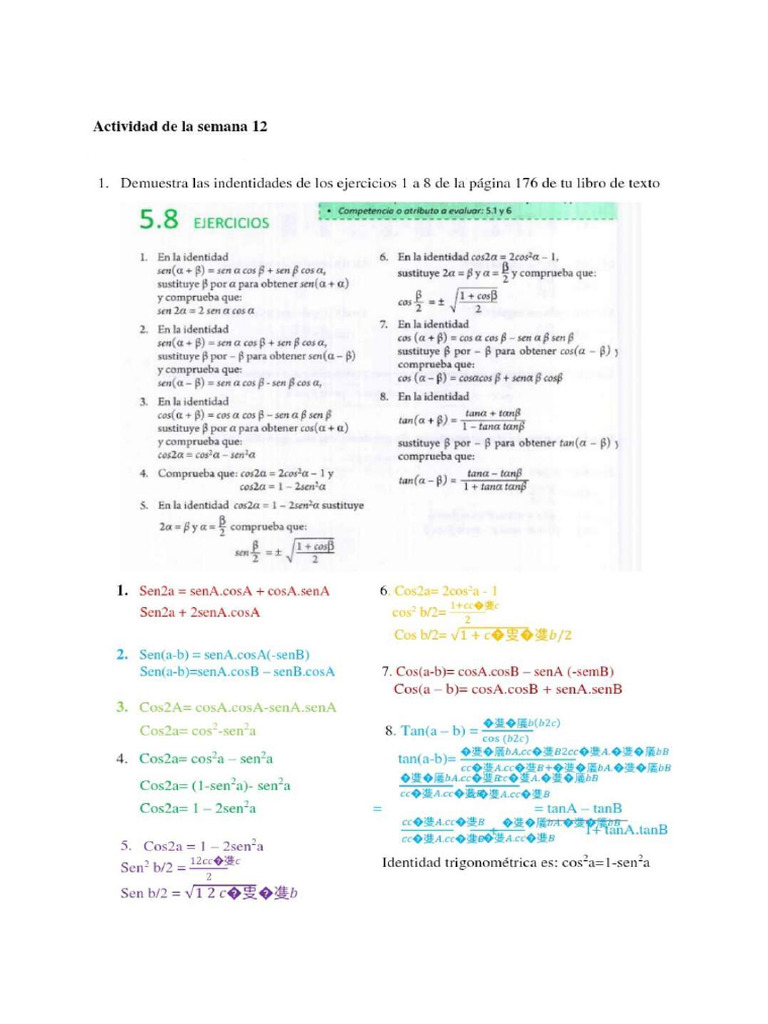 Actividad de la semana 12
1. Demuestra las indentidades de los ejercicios 1 a 8 de la página 176 de tu libro de texto
5.8 EJERCICIOS
• Competencia o atributo a evaluar: 5.1 y 6
1. En la identidad
sen(α + β) = sen α cos β + sen β cos α,
sustituye β por α para obtener sen(α + α)
y comprueba que:
sen 2α = 2 sen α cos α
2. En la identidad
sen(α + β) = sen α cos β + sen β cos α,
sustituye β por – β para obtener sen(α – β)
y comprueba que:
sen(α – β) = sen α cos β - sen β cos α,
3. En la identidad
cos(α + β) = cos α cos β – sen α sen β
sustituye β por α para obtener cos(α + α)
y comprueba que:
cos2α = cos²α – sen²α
4. Comprueba que: cos2α = 2cos²α – 1 y
cos2α = 1 – 2sen²α
5. En la identidad cos2α = 1 – 2sen²α sustituye
2α = β y α = β/2 comprueba que:
sen β/2 = ± √(1 + cosβ / 2)
6. En la identidad cos2α = 2cos²α – 1,
sustituye 2α = β y α = β/2 y comprueba que:
cos β/2 = ± √(1 + cosβ / 2)
7. En la identidad
cos (α + β) = cos α cos β – sen α β sen β
sustituye β por – β para obtener cos(α – β) y
comprueba que:
cos (α – β) = cosαcos β + senα β cosβ
8. En la identidad
tan(α + β) = tanα + tanβ / 1 – tanα tanβ
sustituye β por – β para obtener tan(α – β) y
comprueba que:
tan(α – β) = tanα – tanβ / 1 + tanα tanβ
1. Sen2a = senA.cosA + cosA.senA
Sen2a + 2senA.cosA
2. Sen(a-b) = senA.cosA(-senB)
Sen(a-b)=senA.cosB – senB.cosA
3. Cos2A= cosA.cosA-senA.senA
Cos2a= cos²-sen²a
4. Cos2a= cos²a – sen²a
Cos2a= (1-sen²a)- sen²a
Cos2a= 1 – 2sen²a
5. Cos2a = 1 – 2sen²a
Sen² b/2 =
Sen b/2 =
6. Cos2a= 2cos²a - 1
cos² b/2=
Cos b/2=
7. Cos(a-b)= cosA.cosB – senA (-semB)
Cos(a – b)= cosA.cosB + senA.senB
8. Tan(a – b) =
tan(a-b)=
= = tanA – tanB
1+ tanA.tanB
Identidad trigonométrica es: cos²a=1-sen²a